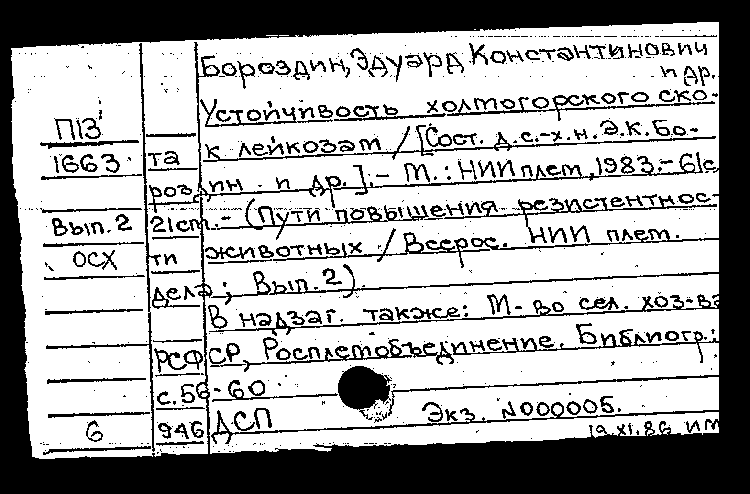 Бороздин, Эдуард Константинович
и др.
Устойчивость холмогорского ско-
П13
1663. та к лейкозам / [Сост. д.с.-х.н. Э.К. Бо-
роздин и др.]. - М.: НИИ плем, 1983. - 61с
Вып. 2 21см. - (Пути повышения резистентнос-
ОСХ ти животных / Всерос. НИИ плем.
дела; Вып. 2).
В надзаг. также: М-во сел. хоз-ва
РСФСР, Росплемобъединение. Библиогр.:
с. 56-60
6 946 ДСП Экз. N000005.
19.XI.86 ИМ